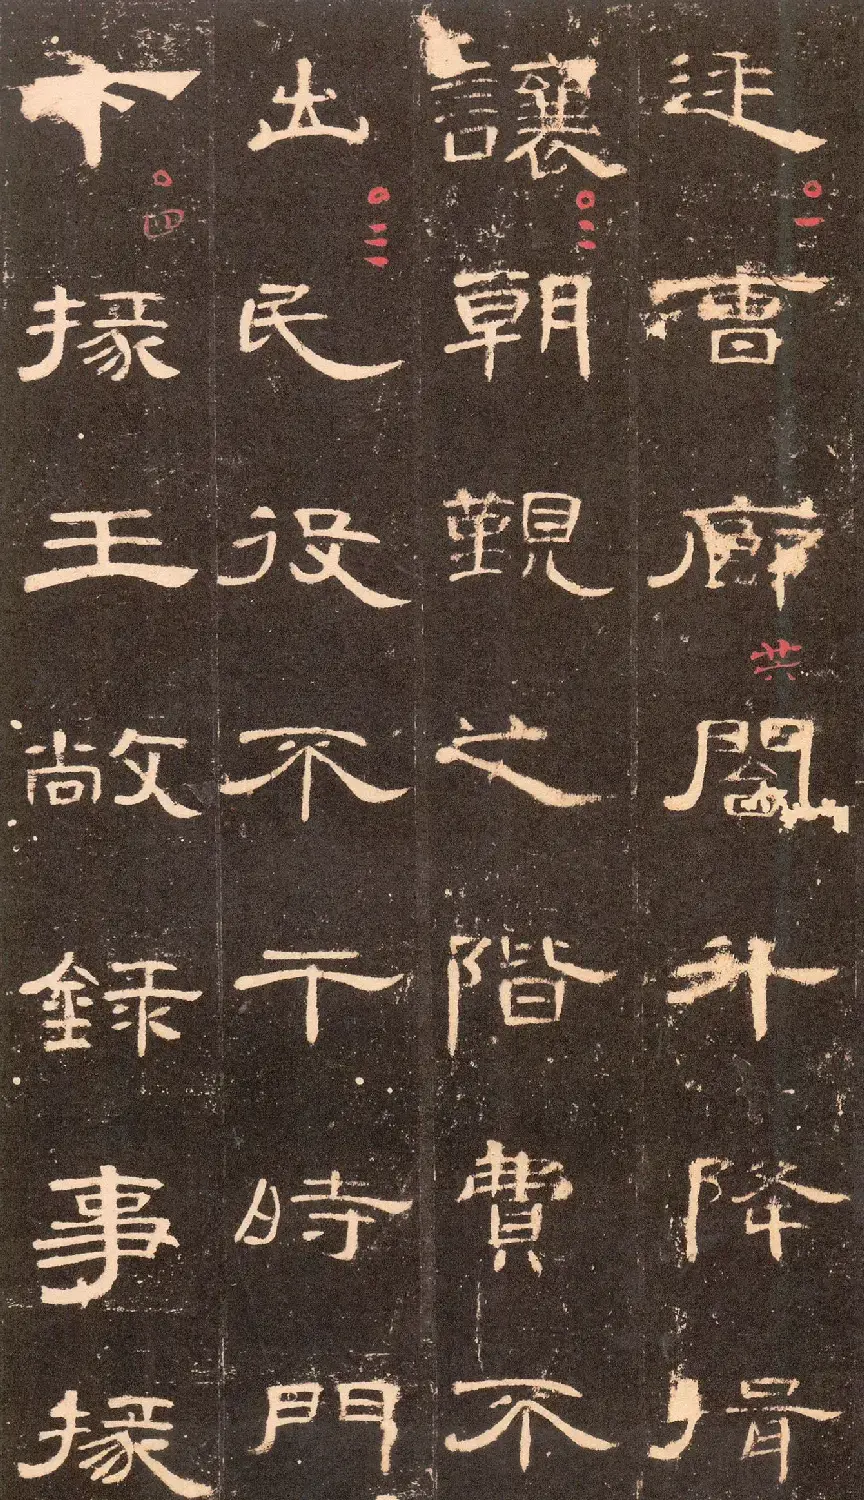 廷曹廊閣升降揖
讓朝覲之階費不
出民役不干時門
下掾王敞録事掾
〇一
〇二
〇三
〇四